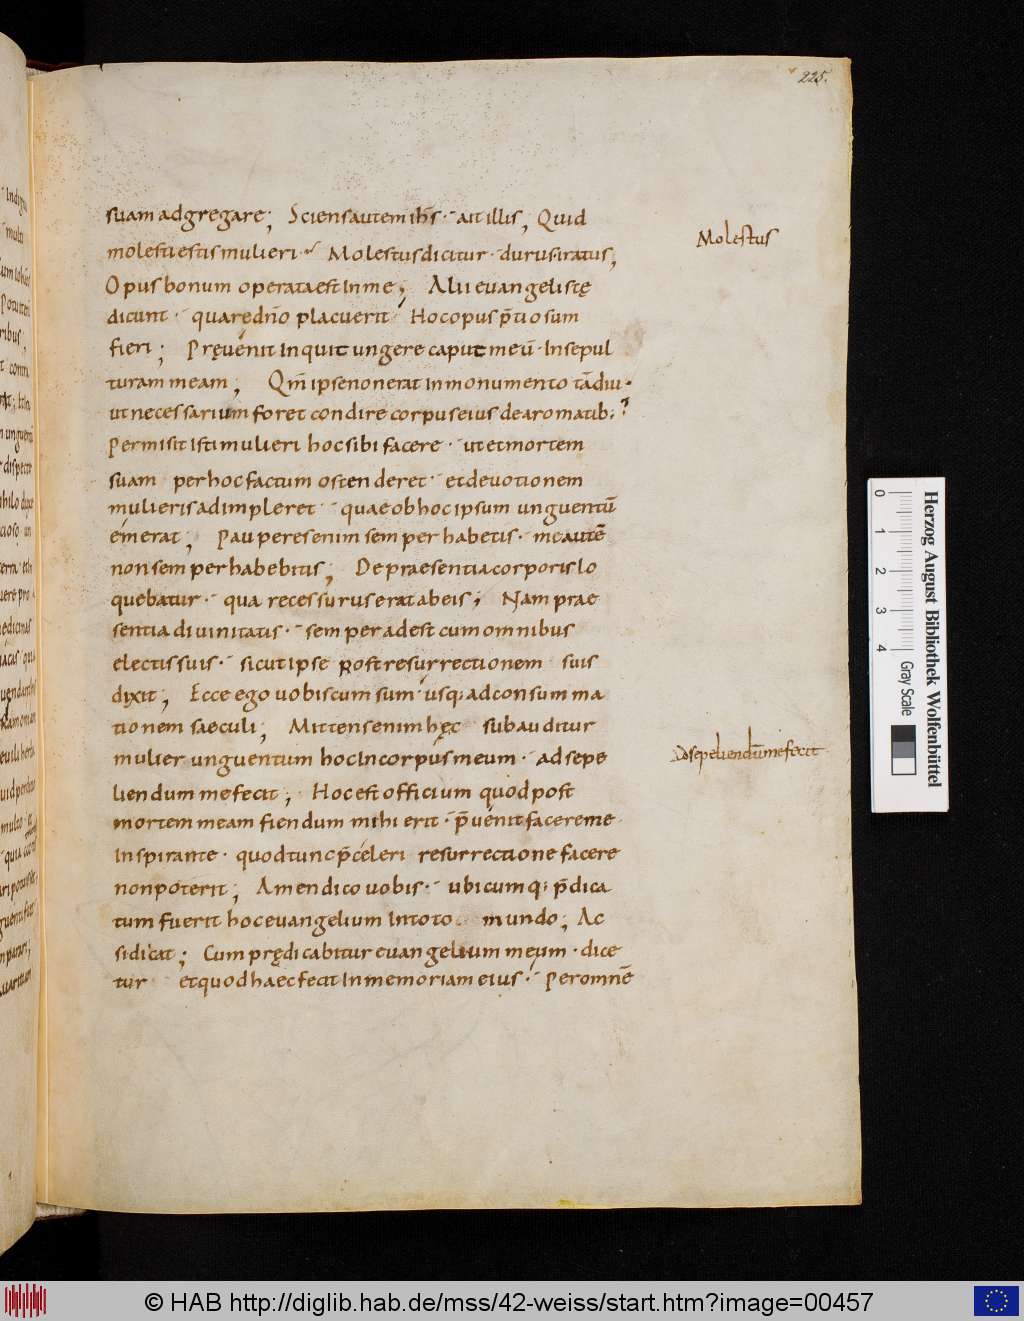 225.
suam adgregare; Sciens autem ihs̄ · ait illis, Quid
molesti estis mulieri · Molestus dicitur · durus · iratus,
Opus bonum operata est In me; Alii euangelistę
dicunt · quare dn̄o placuerit Hoc opus p̄tiosum
fieri; Pręuenit Inquit ungere caput meū · In sepul
turam meam; Qm̄ ipse non erat in monumento tādiu ·
ut necessarium foret condire corpus eius de aromatib:
Permisit isti mulieri hoc sibi facere · ut et mortem
suam per hoc factum ostenderet · et deuotionem
mulieris adimpleret · quae ob hoc ipsum unguentū
emerat; Pauperes enim semper habetis · me autē
non semper habebitis; De praesentia corporis lo
quebatur · qua recessurus erat ab eis; Nam prae
sentia diuinitatis · semper adest cum omnibus
electis suis · sicut ipse post resurrectionem suis
dixit; Ecce ego uobiscum sum usq; ad consumma
tionem saeculi; Mittens enim hęc subauditur
mulier unguentum hoc In corpus meum · ad sepe
liendum me fecit; Hoc est officium quod post
mortem meam fiendum mihi erit · p̄uenit facere me
Inspirante · quod tunc p̄celeri resurrectione facere
non poterit; Amen dico uobis · ubicumq: p̄dica
tum fuerit hoc euangelium In toto mundo; Ac
si dicat; Cum prędicabitur euangelium meum · dice
tur et quod haec fecit In memoriam eius · Per omnē
Molestus
Ad sepeliendū me fecit
Herzog August Bibliothek Wolfenbüttel
0 1 2 3 4 Gray Scale
© HAB http://diglib.hab.de/mss/42-weiss/start.htm?image=00457